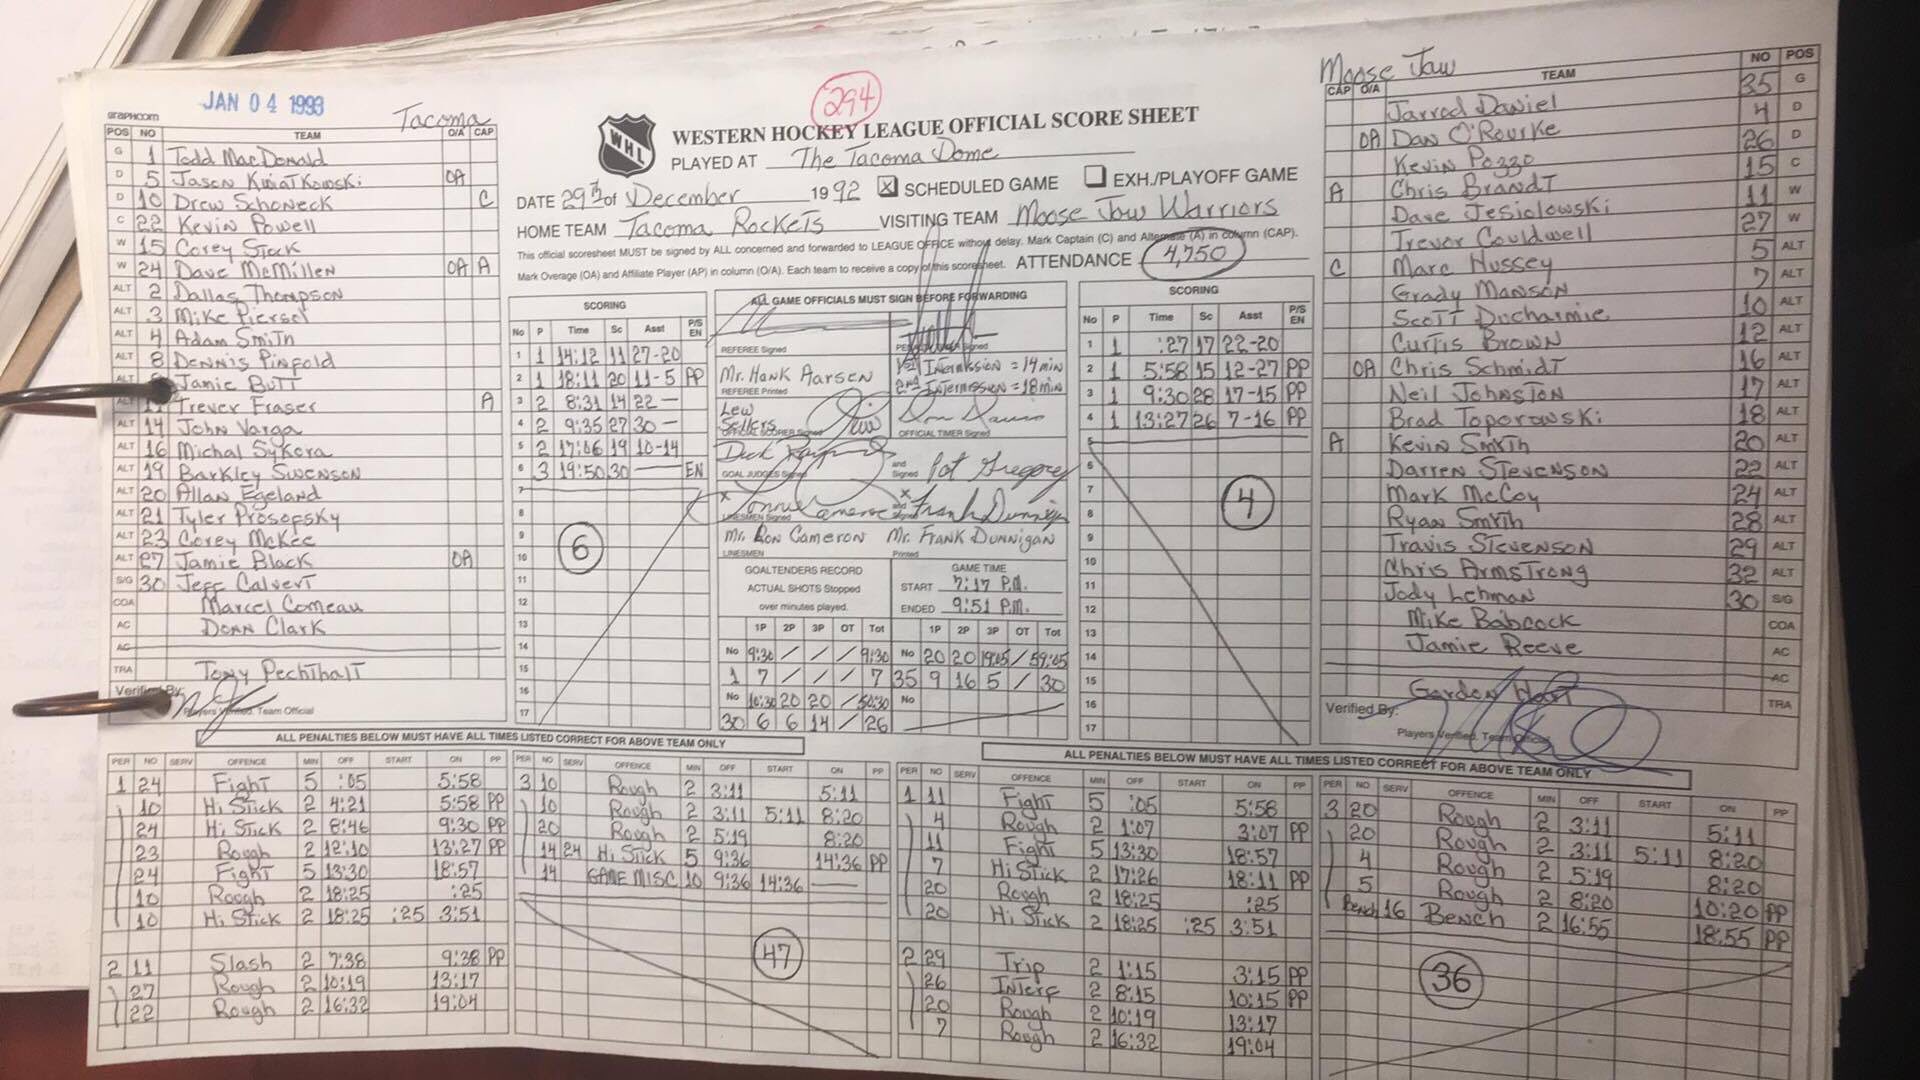 JAN 04 1993
294
graphcom
Tacoma
POS NO TEAM O/A CAP
G 1 Todd MacDonald
D 5 Jason Kwiatkowski OA
D 10 Drew Schoneck C
C 22 Kevin Powell
W 15 Corey Stock
W 24 Dave McMillen OA A
ALT 2 Dallas Thompson
ALT 3 Mike Piersol
ALT 4 Adam Smith
ALT 8 Dennis Pinfold
ALT Jamie Butt
ALT 11 Trever Fraser A
ALT 14 John Varga
ALT 16 Michal Sykora
ALT 19 Barkley Swenson
ALT 20 Allan Egeland
ALT 21 Tyler Prosofsky
ALT 23 Corey McKee
ALT 27 Jamie Black OA
S/G 30 Jeff Calvert
COA Marcel Comeau
AC Doan Clark
AC
TRA Tony Pechthalt
Verified By:
Players Verified, Team Official
WHL
WESTERN HOCKEY LEAGUE OFFICIAL SCORE SHEET
PLAYED AT The Tacoma Dome
DATE 29th of December 1992 X SCHEDULED GAME EXH./PLAYOFF GAME
HOME TEAM Tacoma Rockets VISITING TEAM Moose Jaw Warriors
This official scoresheet MUST be signed by ALL concerned and forwarded to LEAGUE OFFICE without delay. Mark Captain (C) and Alternate (A) in column (CAP).
Mark Overage (OA) and Affiliate Player (AP) in column (O/A). Each team to receive a copy of this scoresheet. ATTENDANCE 4,750
SCORING
No P Time Sc Asst P/S EN
1 1 14:12 11 27-20
2 1 18:11 20 11-5 PP
3 2 8:31 14 22 —
4 2 9:35 27 30 —
5 2 17:06 19 10-14
6 3 19:50 30 — EN
7
8
9
10
11
12
13
14
15
16
17
6
ALL GAME OFFICIALS MUST SIGN BEFORE FORWARDING
REFEREE Signed
Mr. Hank Aarsen 1st Intermission = 14 min
REFEREE Printed 2nd Intermission = 18 min
Lew Sellers
OFFICIAL SCORER Signed OFFICIAL TIMER Signed
Dick
GOAL JUDGES Signed and Signed Pat Gregory
x x Frank Dunnigan
LINESMEN Signed and Signed
Mr. Ron Cameron Mr. Frank Dunnigan
LINESMEN Printed
GOALTENDERS RECORD
ACTUAL SHOTS Stopped
over minutes played.
GAME TIME
START 7:17 P.M.
ENDED 9:51 P.M.
1P 2P 3P OT Tot 1P 2P 3P OT Tot
No 9:30 / / / 9:30 No 20 20 19:05 / 59:05
1 7 / / / 7 35 9 16 5 / 30
No 10:30 20 20 / 50:30 No
30 6 6 14 / 26
SCORING
No P Time Sc Asst P/S EN
1 1 :27 17 22-20
2 1 5:58 15 12-27 PP
3 1 9:30 28 17-15 PP
4 1 13:27 26 7-16 PP
5
6
7
8
9
10
11
12
13
14
15
16
17
4
Moose Jaw
CAP O/A TEAM NO POS
Jarrod Daniel 35 G
OA Dan O'Rourke 4 D
Kevin Pozzo 26 D
A Chris Brandt 15 C
Dave Jesiolowski 11 W
Trevor Couldwell 27 W
C Marc Hussey 5 ALT
Grady Manson 7 ALT
Scott Ducharmie 10 ALT
Curtis Brown 12 ALT
OA Chris Schmidt 16 ALT
Neil Johnston 17 ALT
Brad Toporowski 18 ALT
A Kevin Smith 20 ALT
Darren Stevenson 22 ALT
Mark McCoy 24 ALT
Ryan Smith 28 ALT
Travis Stevenson 29 ALT
Chris Armstrong 32 ALT
Jody Lehman 30 S/G
Mike Babcock COA
Jamie Reeve AC
AC
Gordon Hart TRA
Verified By:
Players Verified, Team Official
ALL PENALTIES BELOW MUST HAVE ALL TIMES LISTED CORRECT FOR ABOVE TEAM ONLY
PER NO SERV OFFENCE MIN OFF START ON PP
1 24 Fight 5 :05 5:58
10 Hi Stick 2 4:21 5:58 PP
24 Hi Stick 2 8:46 9:30 PP
23 Rough 2 12:10 13:27 PP
24 Fight 5 13:30 18:57
10 Rough 2 18:25 :25
10 Hi Stick 2 18:25 :25 3:51
2 11 Slash 2 7:38 9:38 PP
27 Rough 2 10:19 13:17
22 Rough 2 16:32 19:04
PER NO SERV OFFENCE MIN OFF START ON PP
3 10 Rough 2 3:11 5:11
10 Rough 2 3:11 5:11 8:20
20 Rough 2 5:19 8:20
14 24 Hi Stick 5 9:36 14:36 PP
14 GAME MISC 10 9:36 14:36 —
47
ALL PENALTIES BELOW MUST HAVE ALL TIMES LISTED CORRECT FOR ABOVE TEAM ONLY
PER NO SERV OFFENCE MIN OFF START ON PP
1 11 Fight 5 :05 5:58
4 Rough 2 1:07 3:07 PP
11 Fight 5 13:30 18:57
7 Hi Stick 2 17:26 18:11 PP
20 Rough 2 18:25 :25
20 Hi Stick 2 18:25 :25 3:51
2 29 Trip 2 1:15 3:15 PP
26 Interf 2 8:15 10:15 PP
20 Rough 2 10:19 13:17
7 Rough 2 16:32 19:04
PER NO SERV OFFENCE MIN OFF START ON PP
3 20 Rough 2 3:11 5:11
20 Rough 2 3:11 5:11 8:20
4 Rough 2 5:19 8:20
5 Rough 2 8:20 10:20 PP
Bench 16 Bench 2 16:55 18:55 PP
36